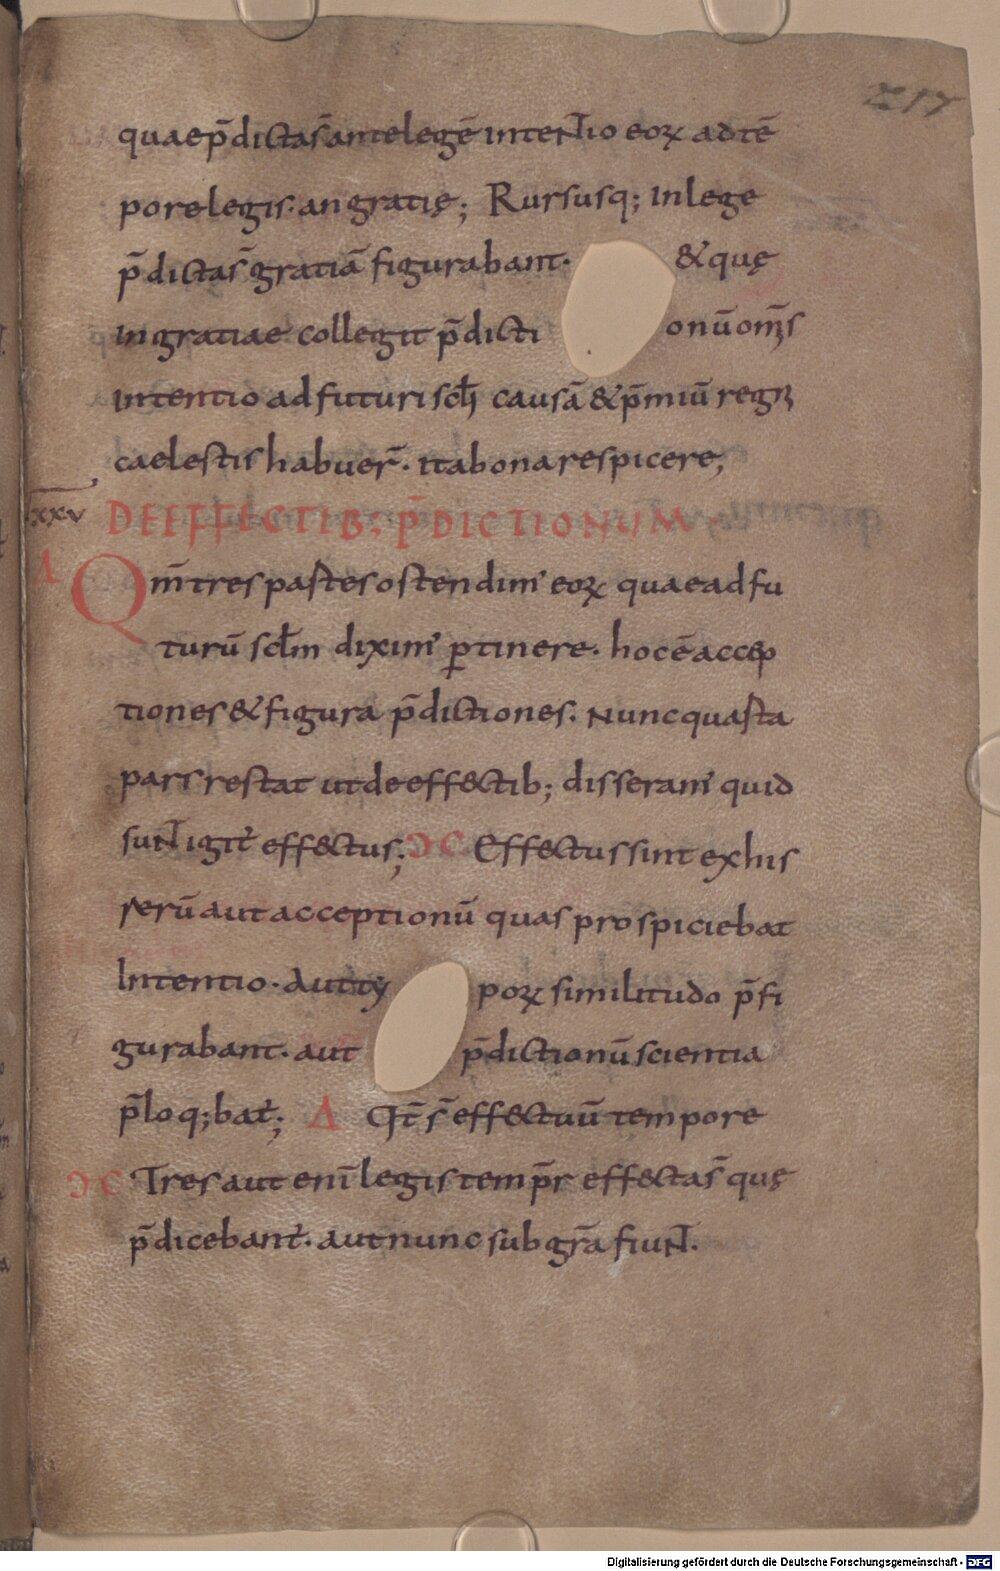 217
quae p̄dictas̄ antelegē intentio eoꝝ ad tē
pore legis. an gratię; Rursusq; In lege
p̄dictas̄ gratiā figurabant. & quę
In gratiae collegit p̄dicti onū om̄s
Intentio ad futuri scłi causā & p̄miū regni
caelestis habuer̄. ita bona respicere;
xxv DE EFFECTIB; P̄DICTIONUM
Δ Qm̄ tres partes ostendim' eoꝝ quae ad fu
turū scłm dixim' ꝑtinere. hoc ē accep
tiones & figura p̄dictiones. Nunc quarta
pars restat ut de effectib; disseram' quid
sunt igit' effectus; ƆC Effectus sint ex his
rerū aut acceptionū quas prospiciebat
Intentio. Aut ty poꝝ similitudo p̄fi
gurabant. aut p̄dictionū scientia
p̄loq;bat'; Δ Qt̄ s̄ effectuū tempore
ƆC Tres aut enī legis temp̄r effectas̄ quę
p̄dicebant'. aut nunc sub gr̄a fiunt.
Digitalisierung gefördert durch die Deutsche Forschungsgemeinschaft - DFG